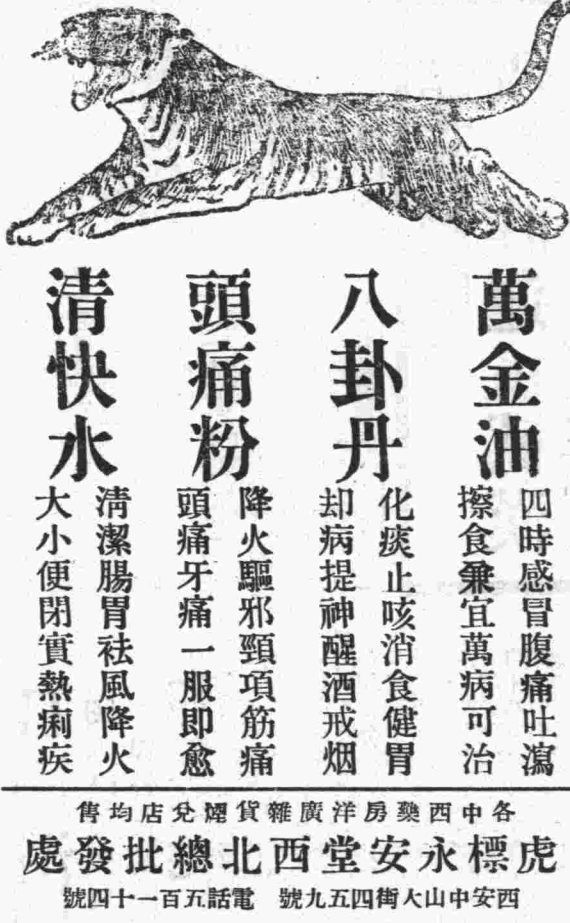 萬金油
四時感冒腹痛吐瀉
擦食兼宜萬病可治
八卦丹
化痰止咳消食健胃
却病提神醒酒戒烟
頭痛粉
降火驅邪頸項筋痛
頭痛牙痛一服即愈
清快水
清潔腸胃祛風降火
大小便閉實熱痢疾
各中西藥房洋廣雜貨煙兌店均售
虎標永安堂西北總批發處
西安中山大街四五九號 電話五百一十四號